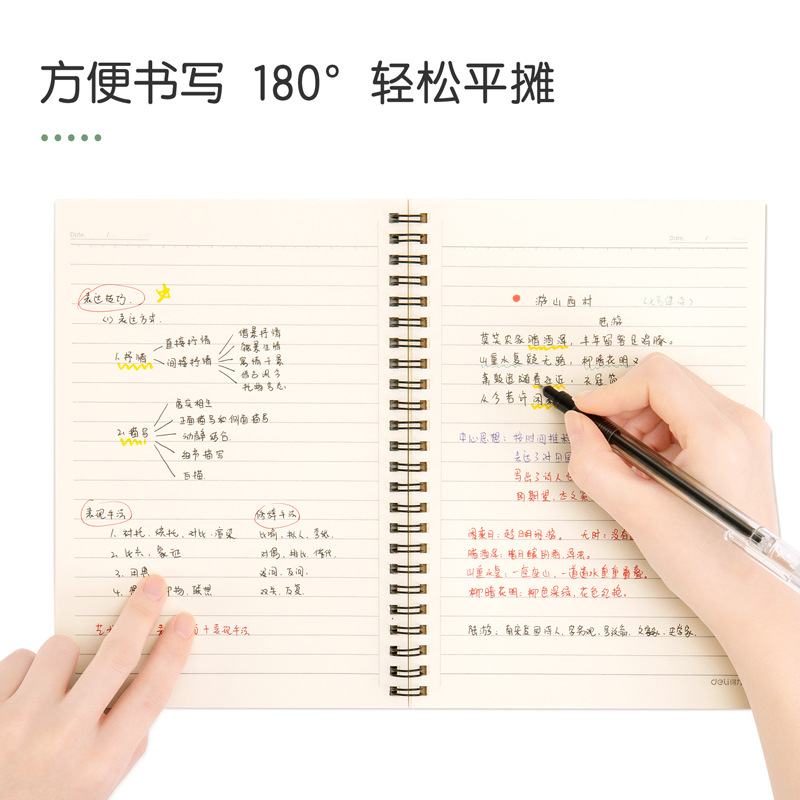 方便书写 180° 轻松平摊
Date. /
Date. /
表达技巧.
(1) 表达方式.
1.抒情
直接抒情
间接抒情
借景抒情
融景生情
寓情于景
托物言志
2.描写
虚实相生
正面描写和侧面描写
动静结合
细节描写
白描
表现手法
修辞手法
1. 衬托, 对比, 渲染
比喻, 拟人, 夸张.
2. 象征
对偶, 排比, 借代.
3. 用典
设问, 反问.
4. 联想
反复.
表现手法
游山西村
陆游
莫笑农家腊酒浑, 丰年留客足鸡豚.
山重水复疑无路, 柳暗花明又
箫鼓追随春社近, 衣冠简
从今若许闲
中心思想: 按时间推
表达了对田园
写出了诗人
的期望,
腊酒浑:
山重水复: 一座座山, 一道道水重重叠叠.
柳暗花明: 柳色深绿, 花色红艳.
陆游: 南宋爱国诗人, 文学家, 史学家.
deli得力